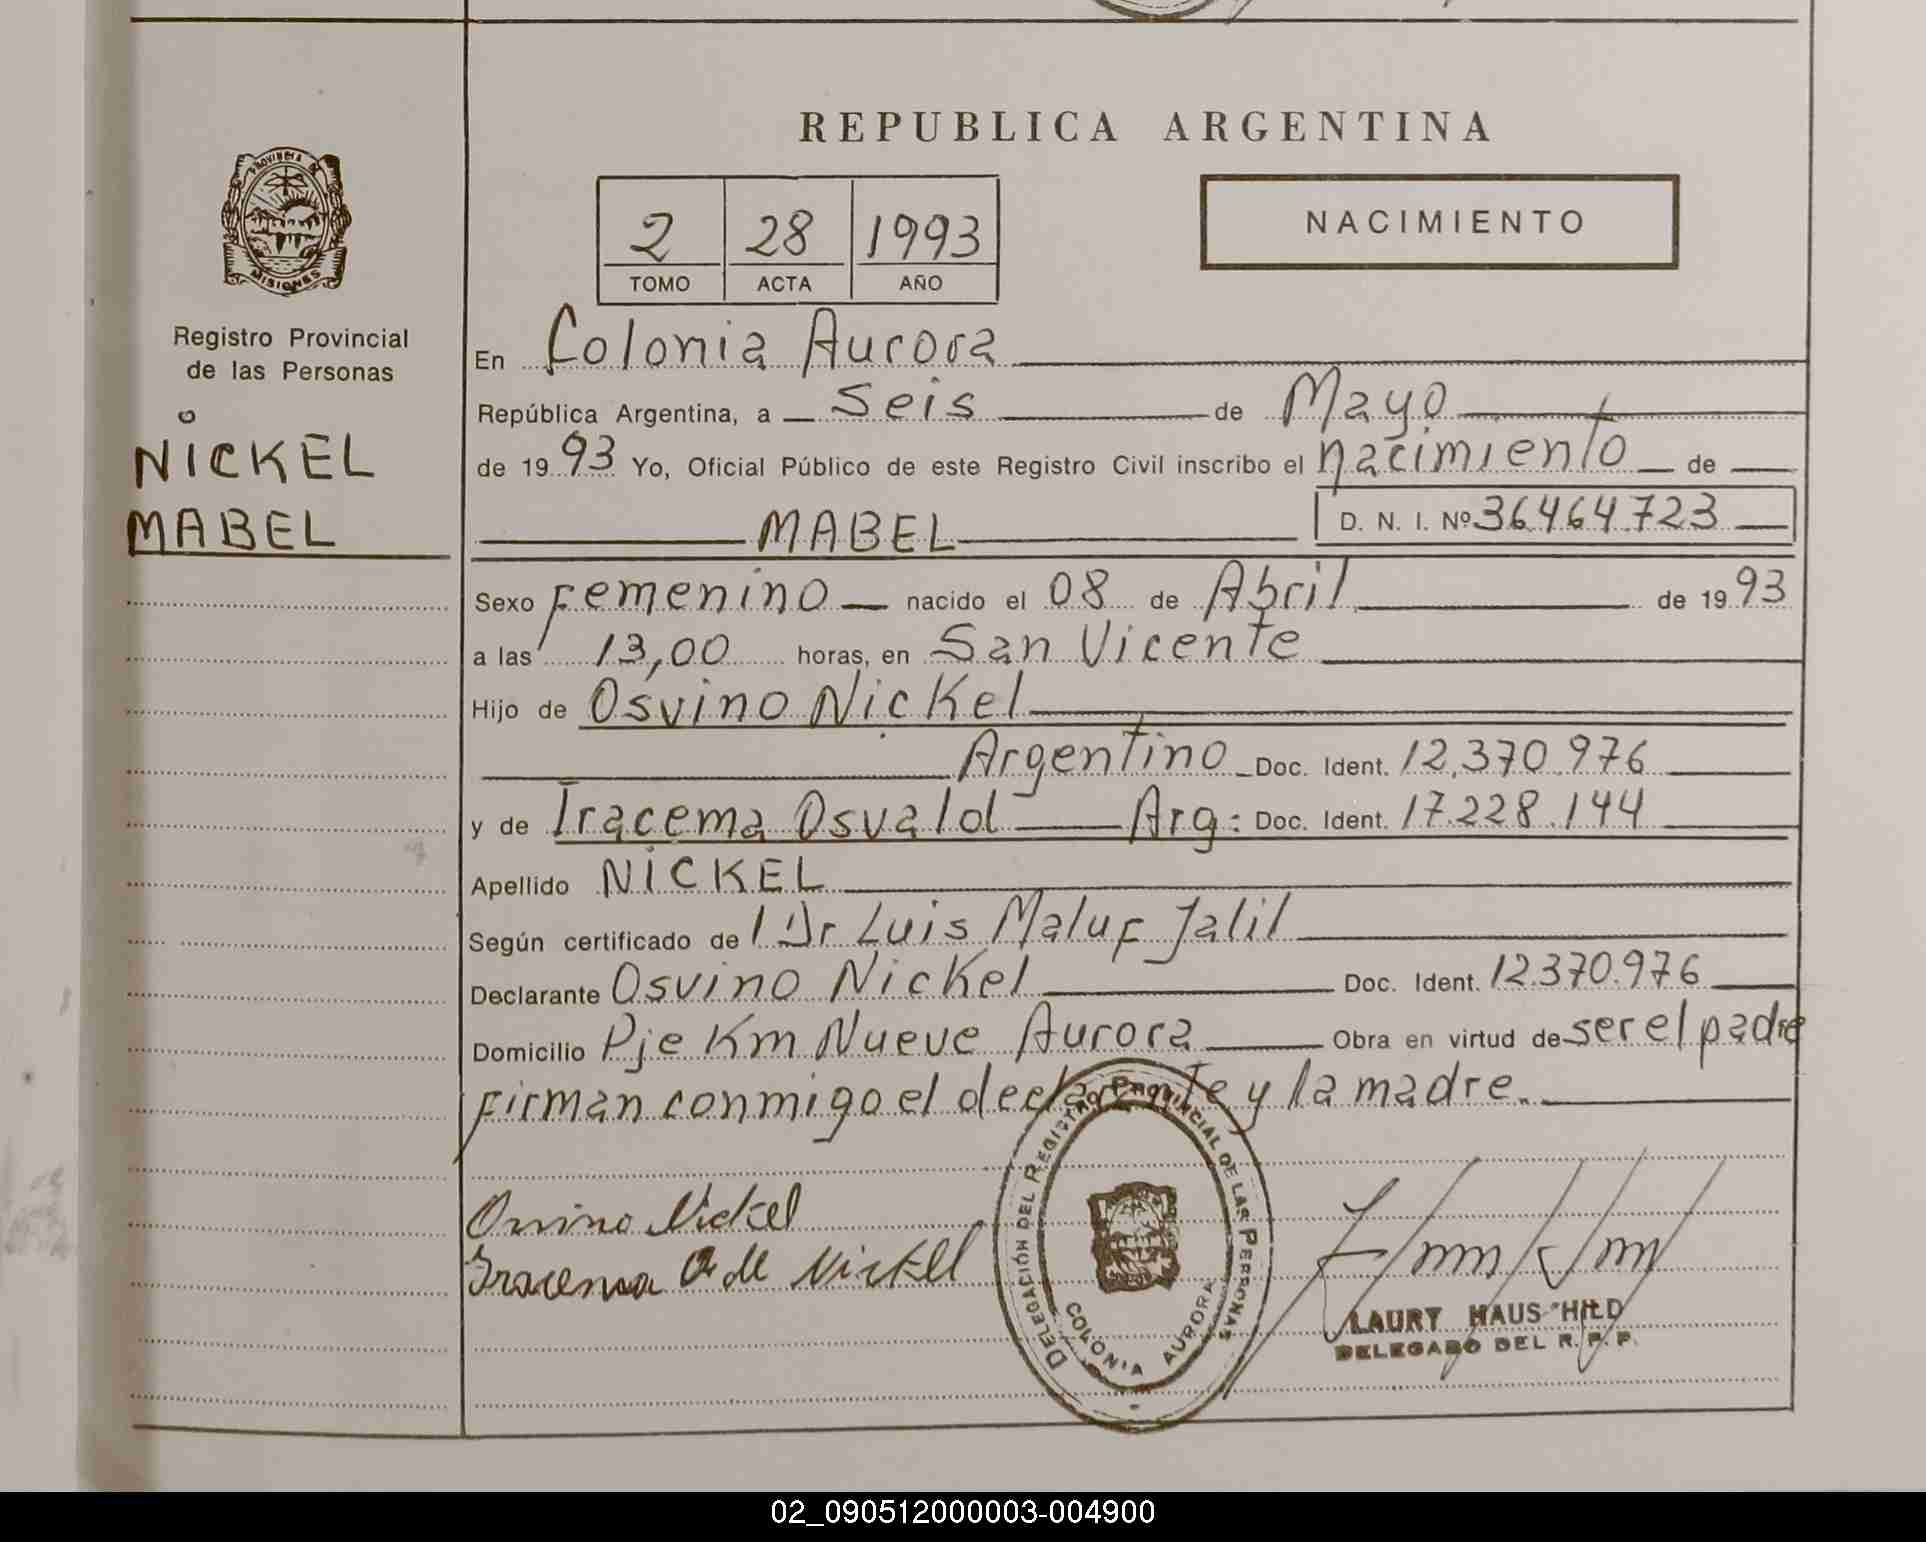 REPUBLICA ARGENTINA
PROVINCIA DE
MISIONES
Registro Provincial
de las Personas
NICKEL
MABEL
2 28 1993
TOMO ACTA AÑO
NACIMIENTO
En Colonia Aurora
República Argentina, a seis de Mayo
de 1993 Yo, Oficial Público de este Registro Civil inscribo el nacimiento de
MABEL D. N. I. Nº 36464723
Sexo Femenino nacido el 08 de Abril de 1993
a las 13,00 horas, en San Vicente
Hijo de Osvino Nickel
Argentino Doc. Ident. 12.370.976
y de Iracema Osvald Arg: Doc. Ident. 17.228.144
Apellido NICKEL
Según certificado de l Dr Luis Maluf Jalil
Declarante Osvino Nickel Doc. Ident. 12.370.976
Domicilio Pje Km Nueve Aurora Obra en virtud de ser el padre
Firman conmigo el declarante y la madre.
Osvino Nickel
Iracema O de Nickel
DELEGACIÓN DEL REGISTRO PROVINCIAL DE LAS PERSONAS
COLONIA AURORA
LAURY HAUS HILD
DELEGADO DEL R. P. P.
02_090512000003-004900